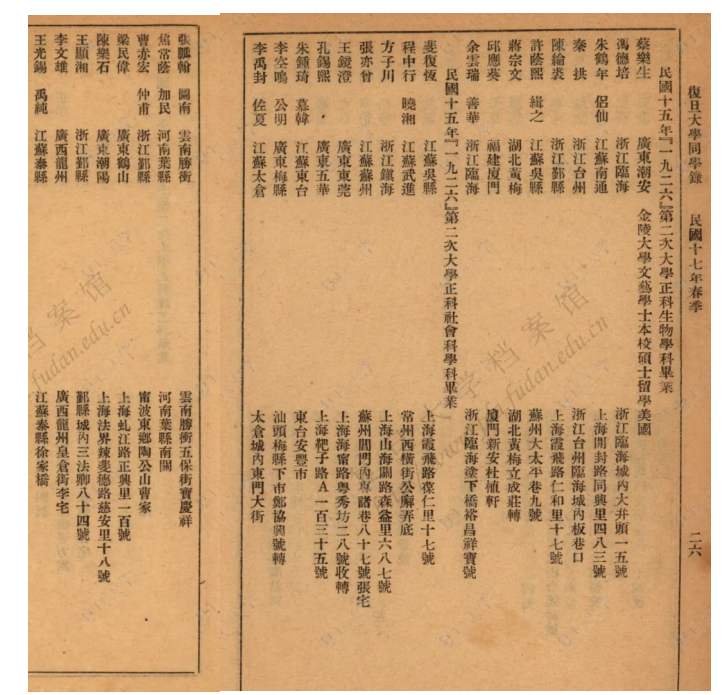 復旦大學同學錄　民國十七年春季　二六
民國十五年『一九二六』第二次大學正科生物學科畢業
蔡樂生　廣東潮安　金陵大學文藝學士本校碩士留學美國
馮德培　浙江臨海　浙江臨海城內大井頭一五號
朱鶴年　侶仙　江蘇南通　上海開封路同興里四八三號
秦拱　浙江台州　浙江台州臨海城內板巷口
陳綸裘　浙江鄞縣　上海霞飛路仁和里十七號
許蔭熙　緝之　江蘇吳縣　蘇州大太平巷九號
蔣宗文　湖北黃梅　湖北黃梅立成莊轉
邱應葵　福建廈門　廈門新安杜植軒
余雲瑞　善華　浙江臨海　浙江臨海塗下橋裕昌祥寶號
民國十五年『一九二六』第二次大學正科社會科學科畢業
裴復恆　江蘇吳縣　上海霞飛路葆仁里十七號
程中行　曉湘　江蘇武進　常州西橫街公廨弄底
方子川　浙江鎮海　上海山海關路森益里六八七號
張亦曾　江蘇蘇州　蘇州閶門內專諸巷八十七號張宅
王鏡澄　廣東東莞　上海海甯路粵秀坊二八號收轉
孔錫熙　廣東五華　上海靶子路A一百三十五號
朱鍾琦　慕韓　江蘇東台　東台安豐市
李空鳴　公明　廣東梅縣　汕頭梅縣下市鄭協興號轉
李禹封　佐夏　江蘇太倉　太倉城內東門大街
張鵬翰　圖南　雲南勝衝　雲南勝衝五保街寶慶祥
焦常蔭　加民　河南葉縣　河南葉縣南關
曹亦宏　仲甫　浙江鄞縣　甯波東鄉陶公山曹家
梁民偉　廣東鶴山　上海虬江路正興里一百號
陳樂石　廣東潮陽　上海法界辣斐德路慈安里十八號
王顯湘　浙江鄞縣　鄞縣城內三法卿八十四號
李文雄　廣西龍州　廣西龍州皇倉街李宅
王光錫　禹純　江蘇泰縣　江蘇泰縣徐家橋